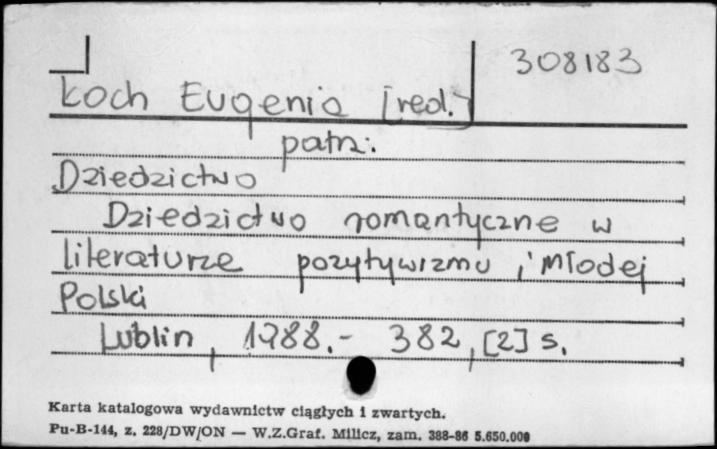 308183
Łoch Eugenia [red.]
patrz:
Dziedzictwo
Dziedzictwo romantyczne w
literaturze pozytywizmu i Młodej
Polski
Lublin, 1988.- 382, [2] s.
Karta katalogowa wydawnictw ciągłych i zwartych.
Pu-B-144, z. 228/DW/ON — W.Z.Graf. Milicz, zam. 388-86 5.650.000